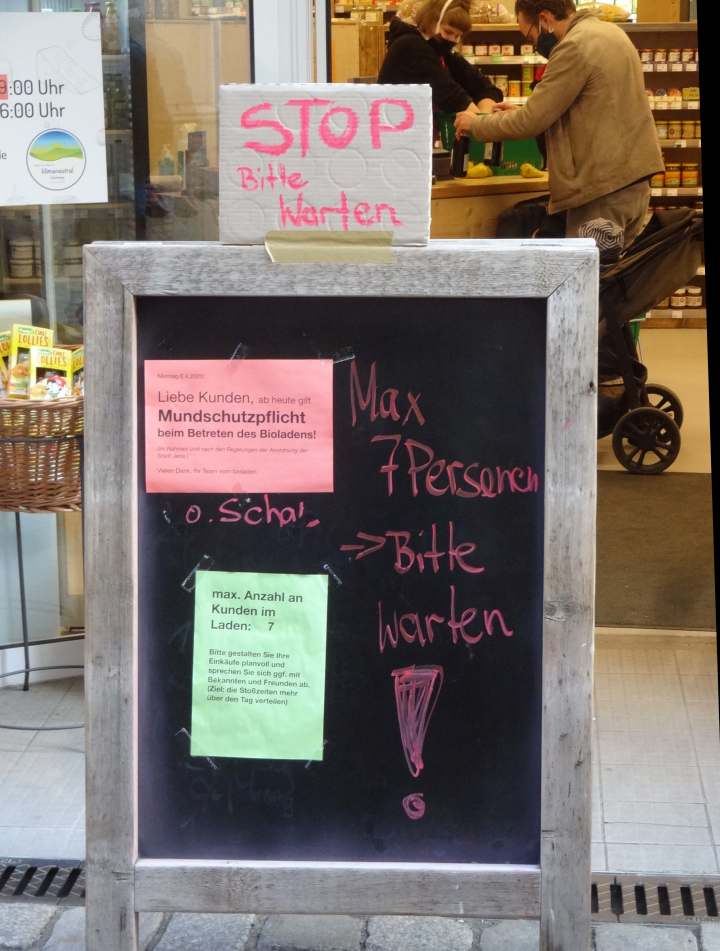 9:00 Uhr
6:00 Uhr
klimaneutral
STOP
Bitte
Warten
LOLLIES
LOLLIES
Liebe Kunden, ab heute gilt
Mundschutzpflicht
beim Betreten des Bioladens!
Im Rahmen und nach den Regelungen der Anordnung der
Stadt Jena!
Vielen Dank, Ihr Team vom bioladen
o. Schal
max. Anzahl an
Kunden im
Laden: 7
Bitte gestalten Sie Ihre
Einkäufe planvoll und
sprechen Sie sich ggf. mit
Bekannten und Freunden ab.
(Ziel: die Stoßzeiten mehr
über den Tag verteilen)
Max
7 Personen
-> Bitte
warten
!